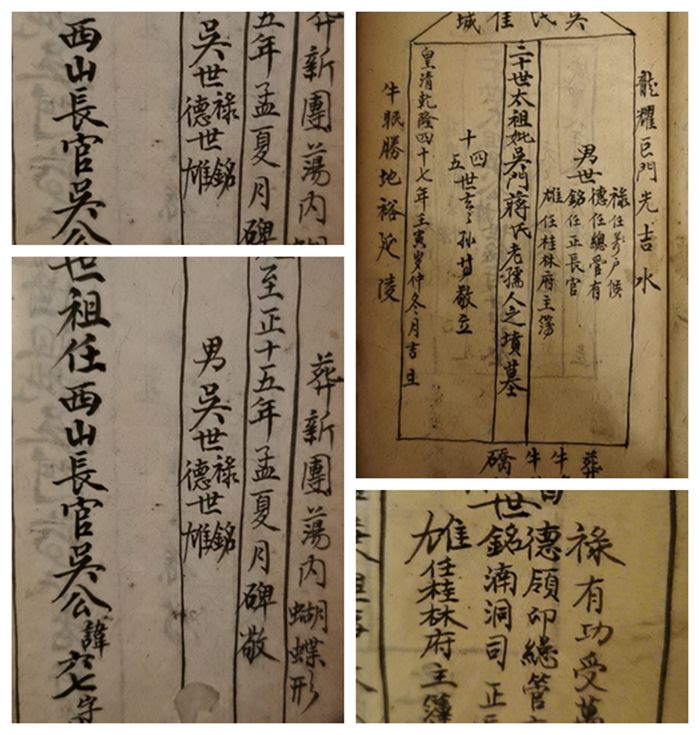 葬新團蕩內
五年孟夏月碑
吳世祿德世銘雄
西山長官吳公
吳氏佳城
龍耀巨門光吉水
男世
祿任萬戶侯
德任總管有
銘任正長官
雄任桂林府主簿
二十世太祖妣吳門蔣氏老孺人之墳墓
十四五世玄々孫等敬立
皇清乾隆四十七年壬寅岁仲冬月吉旦
牛眠勝地裕延陵
葬
牛
牛
礄
葬新團蕩內蝴蝶形
至正十五年孟夏月碑敬
男吳世祿德世銘雄
世祖任西山長官吳公諱六七字
祿有功受萬
德領印總管
世
銘湳洞司正
雄任桂林府主簿